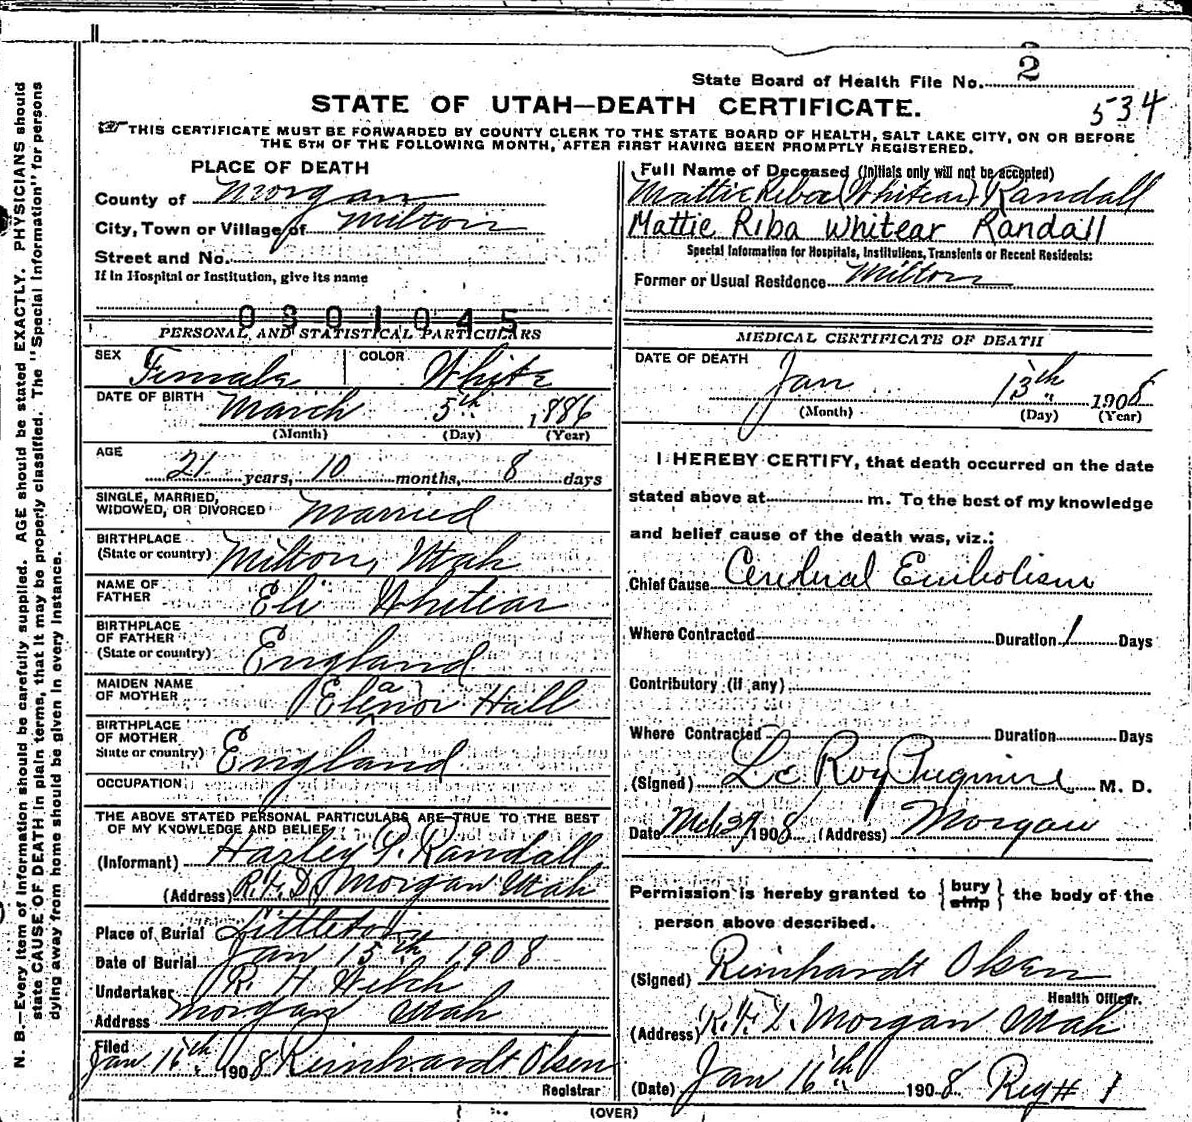 State Board of Health File No. 2
534
STATE OF UTAH—DEATH CERTIFICATE.
THIS CERTIFICATE MUST BE FORWARDED BY COUNTY CLERK TO THE STATE BOARD OF HEALTH, SALT LAKE CITY, ON OR BEFORE
THE 5TH OF THE FOLLOWING MONTH, AFTER FIRST HAVING BEEN PROMPTLY REGISTERED.
N. B.—Every item of information should be carefully supplied. AGE should be stated EXACTLY. PHYSICIANS should
state CAUSE OF DEATH in plain terms, that it may be properly classified. The "Special Information" for persons
dying away from home should be given in every instance.
PLACE OF DEATH
County of Morgan
City, Town or Village of Milton
Street and No.
If in Hospital or Institution, give its name
0301045
PERSONAL AND STATISTICAL PARTICULARS
SEX Female COLOR White
DATE OF BIRTH March 5th, 1886
(Month) (Day) (Year)
AGE
21 years, 10 months, 8 days
SINGLE, MARRIED,
WIDOWED, OR DIVORCED Married
BIRTHPLACE
(State or country) Milton, Utah
NAME OF
FATHER Eli Whitear
BIRTHPLACE
OF FATHER
(State or country) England
MAIDEN NAME
OF MOTHER Elenor Hall
a
BIRTHPLACE
OF MOTHER
State or country) England
OCCUPATION
THE ABOVE STATED PERSONAL PARTICULARS ARE TRUE TO THE BEST
OF MY KNOWLEDGE AND BELIEF
(Informant) Harley P. Randall
(Address) R.F.D. Morgan Utah
Place of Burial Littleton
Date of Burial Jan 15th 1908
Undertaker R. H. Welch
Address Morgan Utah
Filed
Jan 16th 1908 Reinhardt Olsen
Registrar
Full Name of Deceased (Initials only will not be accepted)
Mattie Riba (Whitear) Randall
Mattie Riba Whitear Randall
Special Information for Hospitals, Institutions, Transients or Recent Residents:
Former or Usual Residence Milton
MEDICAL CERTIFICATE OF DEATH
DATE OF DEATH
Jan 13th 1908
(Month) (Day) (Year)
I HEREBY CERTIFY, that death occurred on the date
stated above at m. To the best of my knowledge
and belief cause of the death was, viz.:
Chief Cause Cerebral Embolism
Where Contracted Duration 1 Days
Contributory (if any)
Where Contracted Duration Days
(Signed) Le Roy Pugmire M. D.
Date 1908 (Address) Morgan
Permission is hereby granted to {bury ship} the body of the
person above described.
(Signed) Reinhardt Olsen
Health Officer.
(Address) R.F.D. Morgan Utah
(Date) Jan 16th 1908 Reg # 1
(OVER)